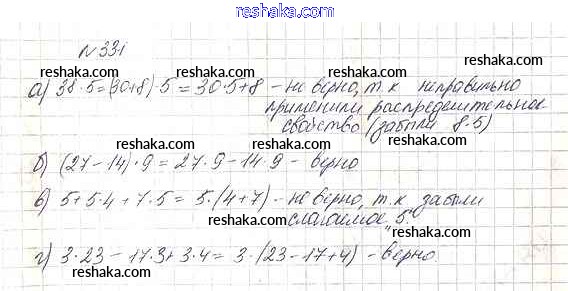 reshaka.com
N 331
reshaka.com reshaka.com
а) 38·5=(30+8)·5=30·5+8 - не верно, т.к неправильно
reshaka.com reshaka.com
применили распределительное
свойство (забыли 8·5)
reshaka.com reshaka.com
б) (27-14)·9=27·9-14·9 - верно
reshaka.com reshaka.com
в) 5+5·4+7·5=5·(4+7) - не верно, т.к забыли
reshaka.com reshaka.com
слагаемое "5".
г) 3·23-17·3+3·4=3·(23-17+4) - верно.
reshaka.com reshaka.com